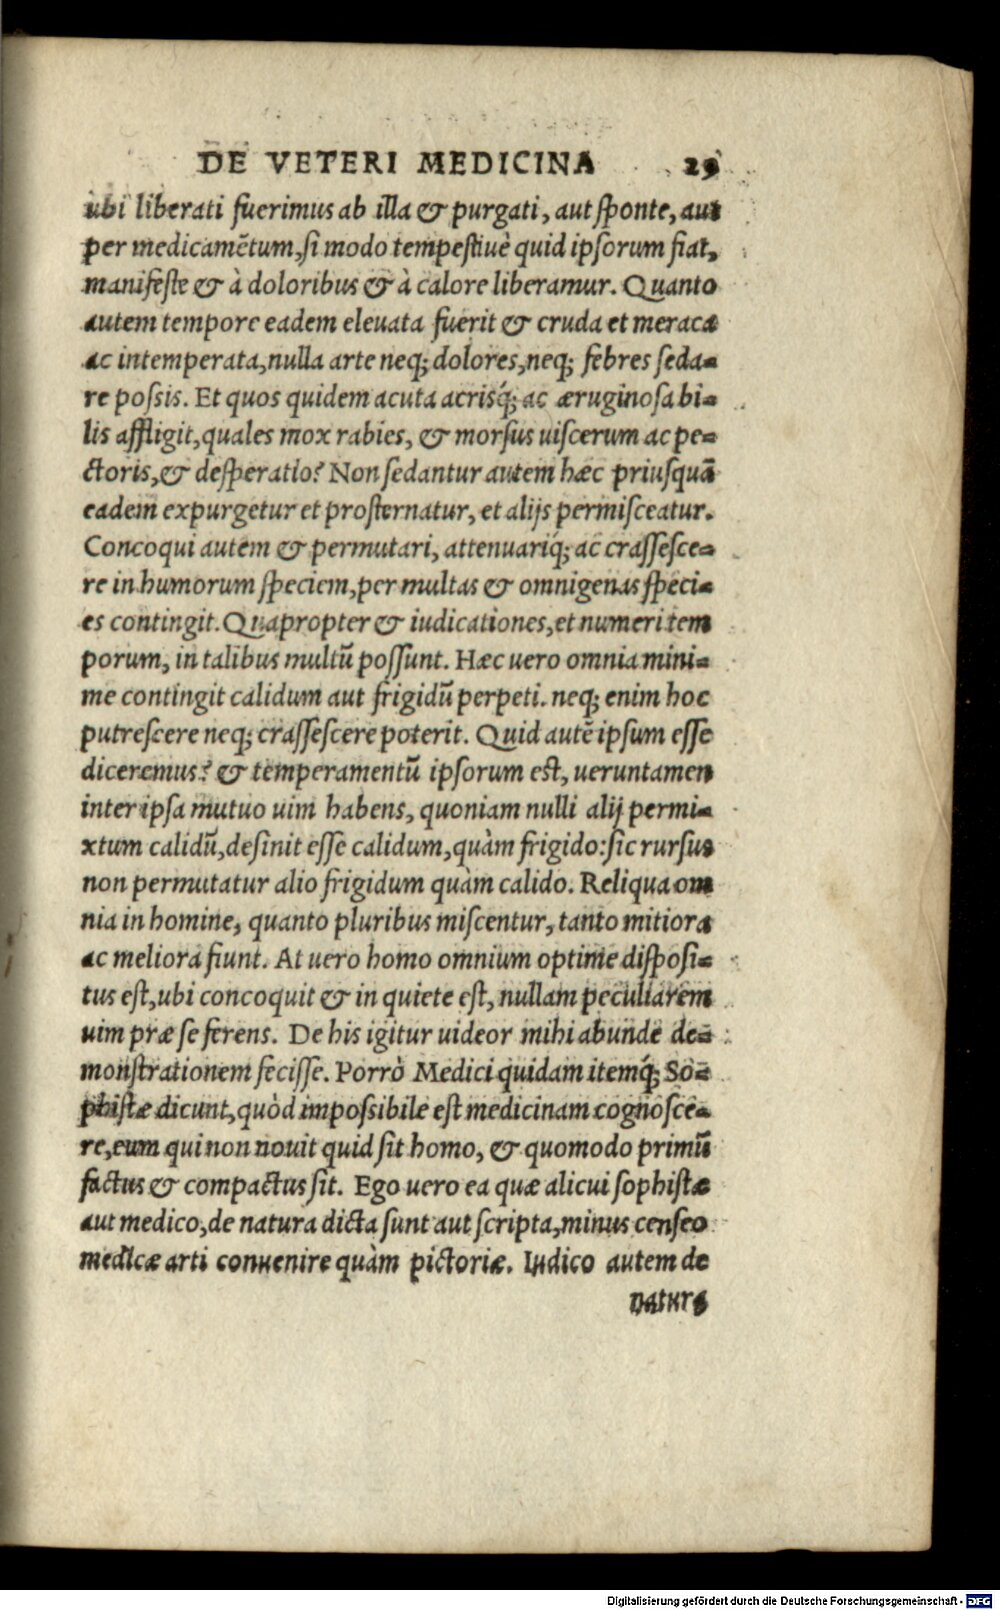 DE VETERI MEDICINA 29
ubi liberati fuerimus ab illa & purgati, aut sponte, aut
per medicamẽtum, si modo tempestiuè quid ipsorum fiat,
manifeste & à doloribus & à calore liberamur. Quanto
autem tempore eadem eleuata fuerit & cruda et meraca
ac intemperata, nulla arte neq; dolores, neq; febres seda-
re possis. Et quos quidem acuta acrisq́; ac æruginosa bi-
lis affligit, quales mox rabies, & morsus uiscerum ac pe-
ctoris, & desperatio? Non sedantur autem hæc priusquã
eadem expurgetur et prosternatur, et alijs permisceatur.
Concoqui autem & permutari, attenuariq́; ac crassesce-
re in humorum speciem, per multas & omnigenas speci-
es contingit. Quapropter & iudicationes, et numeri tem
porum, in talibus multũ possunt. Hæc uero omnia mini-
me contingit calidum aut frigidũ perpeti. neq; enim hoc
putrescere neq; crassescere poterit. Quid autẽ ipsum esse
diceremus? & temperamentũ ipsorum est, ueruntamen
inter ipsa mutuo uim habens, quoniam nulli alij permi-
xtum calidũ, desinit esse calidum, quàm frigido: sic rursus
non permutatur alio frigidum quàm calido. Reliqua om
nia in homine, quanto pluribus miscentur, tanto mitiora
ac meliora fiunt. At uero homo omnium optime disposi-
tus est, ubi concoquit & in quiete est, nullam peculiarem
uim præ se ferens. De his igitur uideor mihi abunde de-
monstrationem fecisse. Porrò Medici quidam itemq́; So-
phistæ dicunt, quòd impossibile est medicinam cognosce-
re, eum qui non nouit quid sit homo, & quomodo primũ
factus & compactus sit. Ego uero ea quæ alicui sophistæ
aut medico, de natura dicta sunt aut scripta, minus censeo
medicæ arti conuenire quàm pictoriæ. Iudico autem de
natura
Digitalisierung gefördert durch die Deutsche Forschungsgemeinschaft - DFG